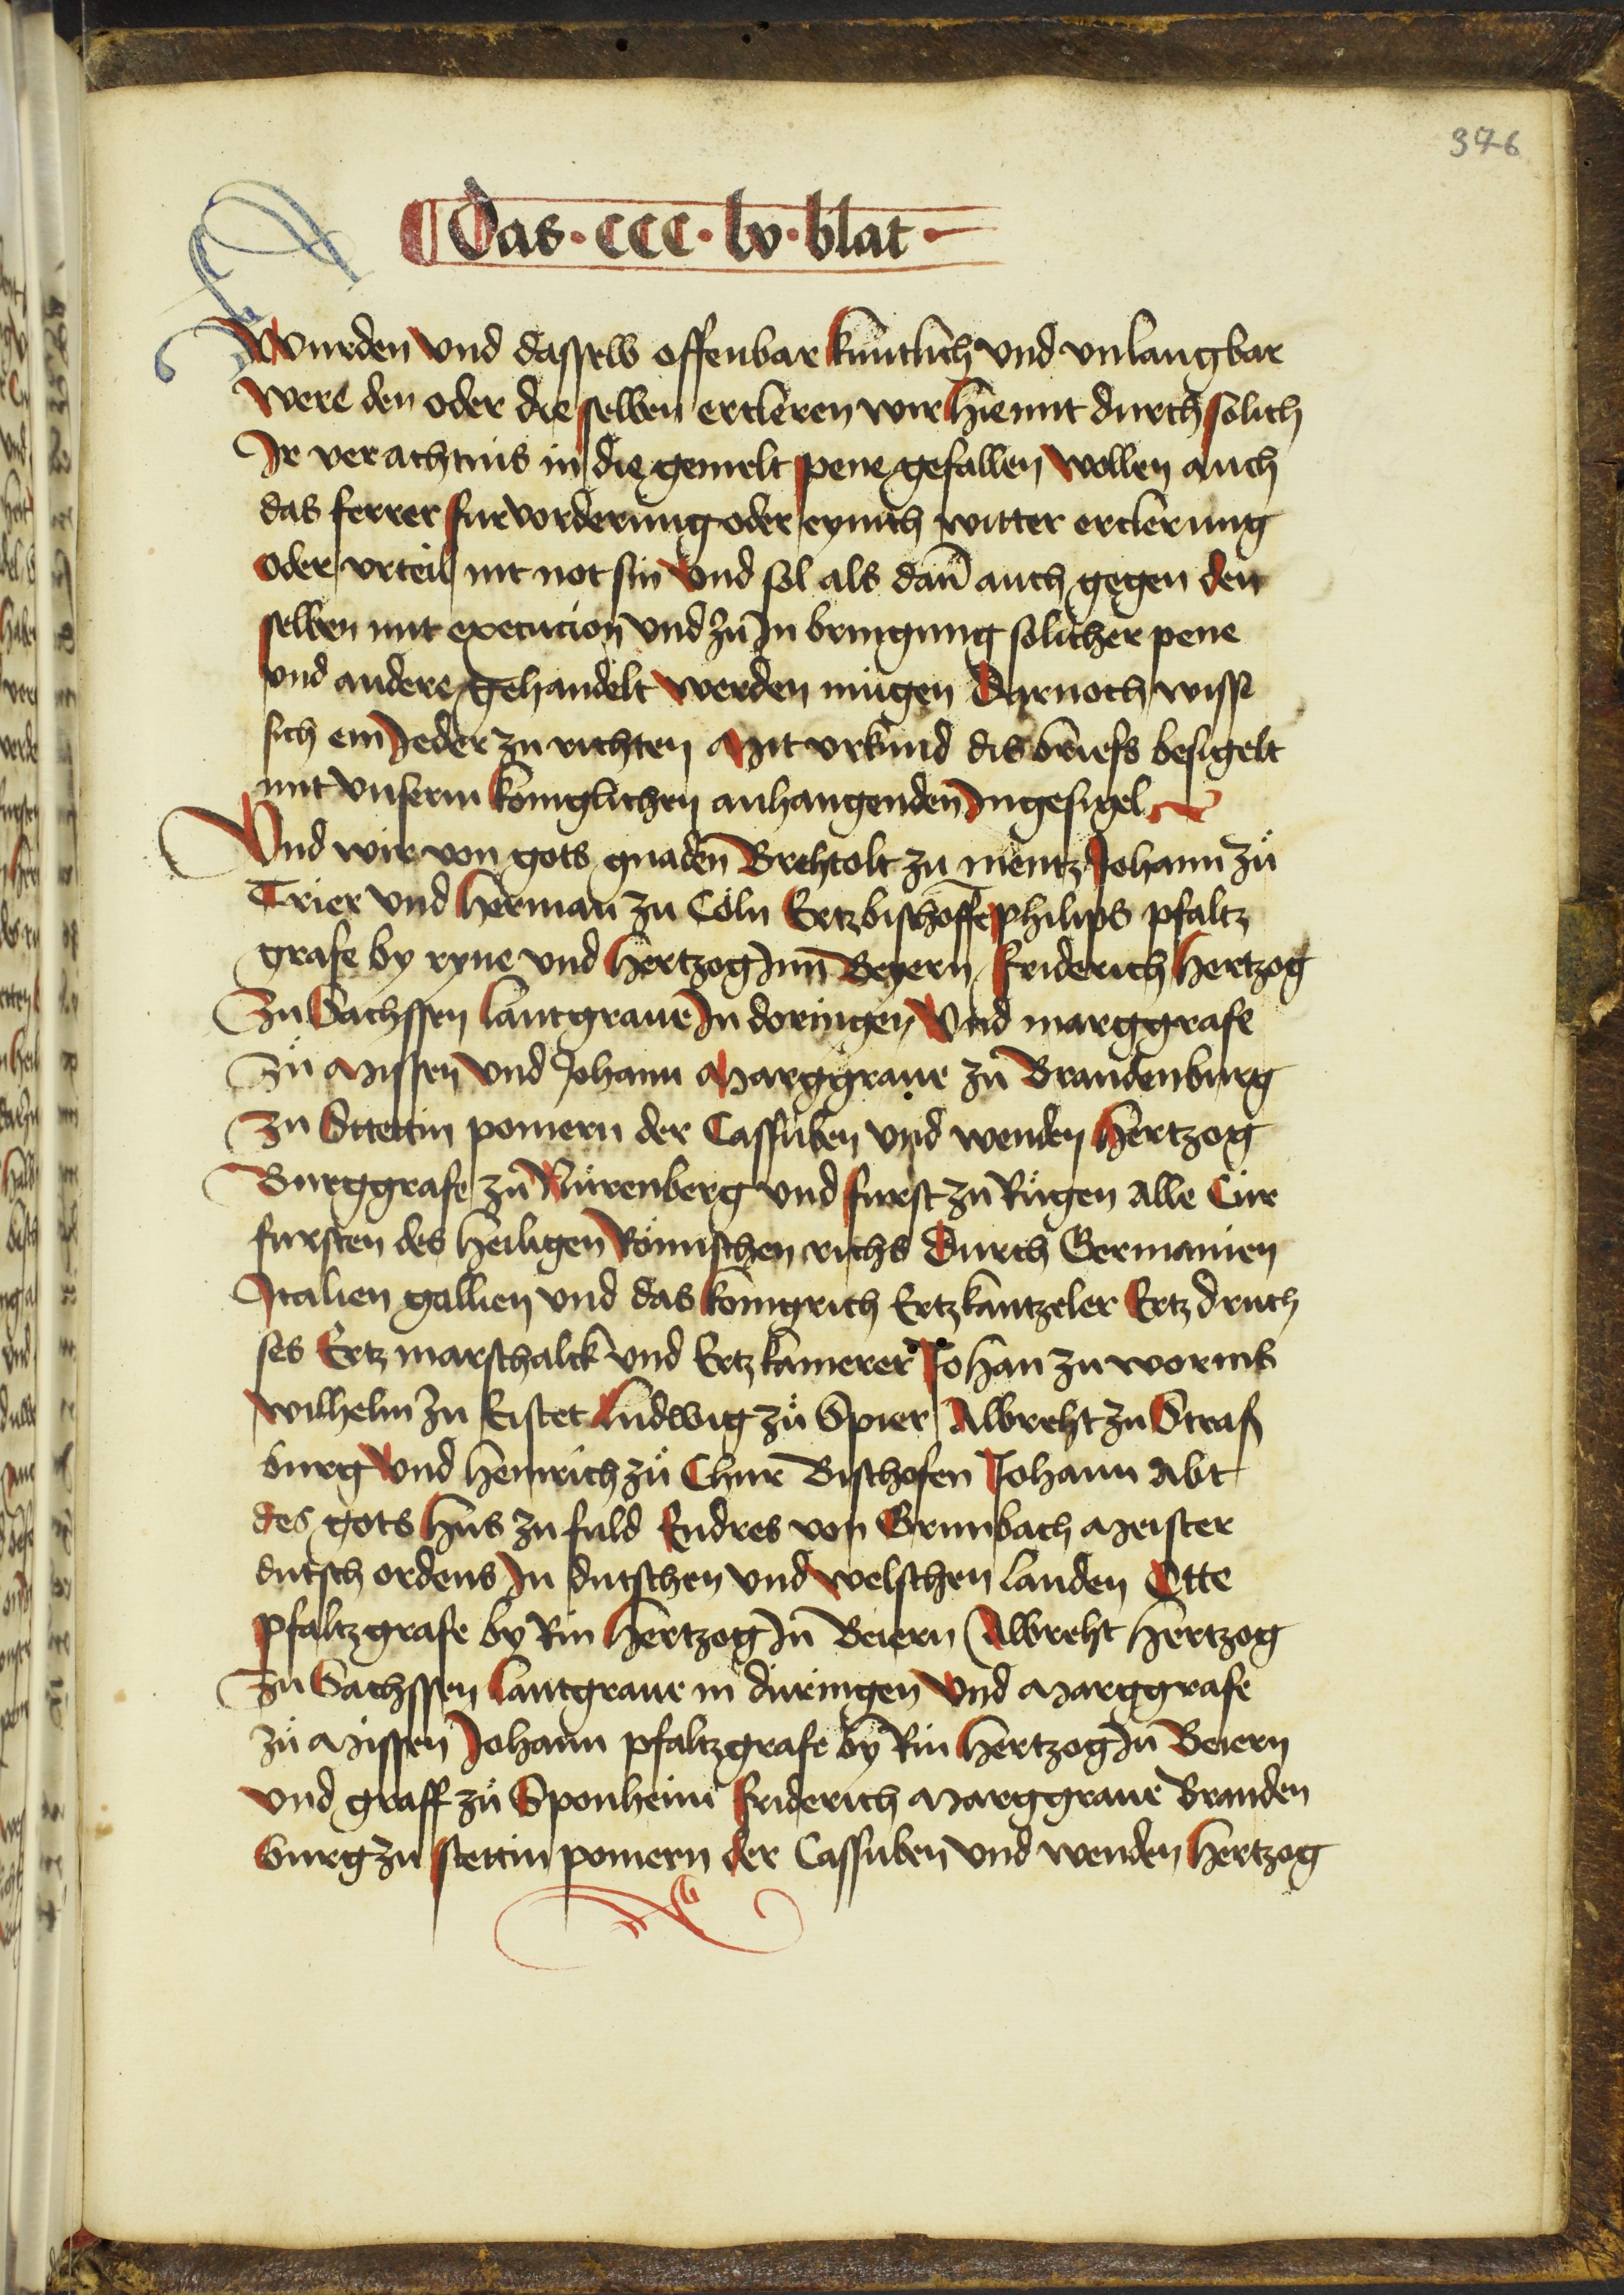 376
Das · CCC · lv · blat ·
Wurden vnd dasselb offenbar kuntlich vnd vnlaugbar
were den oder die selben ercleren wir hiemit durch solich
Ir verachtnis in die gemelt pene gefallen wollen auch
das ferrer furvorderung oder eynich witter erclerung
oder vrteil nit not sin vnd sol als dañ auch gegen den
selben mit execucion vnd zu In bringung solicher pene
vnd andere gehandelt werden mügen Darnoch wiss
sich ein Jeder zu richten Mit vrkund dis briefs besigelt
mit vnserm koniglichen anhangenden Ingesigel
Vnd wir von gots gnaden Brehtolt zu mentz Johann zů
Trier vnd herman zu Cöln Ertzbischoffe philips pfaltz
grafe by ryne vnd hertzog Inn Beyern friderich hertzog
Zu Sachssen lantgraue In doringen Vnd marggrafe
Zů Missen vnd Johann Marggraue zu Brandenburg
Zu Stettin pomern der Cassuben vnd wenden hertzog
Burggrafe zu Nürenberg vnd furst zu Rügen Alle Cur
fursten des heiligen Römischen richs Durch Germanien
Italien gallien vnd das konigrich Ertzkantzeler Ertz druch
ses Ertz marschalck vnd Ertz kamerer Johan zu worms
wilhelm zu Eistet ludwig zů Spier Albreht zu Straß
burg vnd Heinrich zů Chur Bischofen Johann Abt
des gots hus zu fuld Endres von Grumbach Meister
dutsch ordens In dutschen vnd welschen landen Otte
pfaltzgrafe by Rin hertzog In Beiern Albreht hertzog
Zu Sachssen lantgraue in düringen vnd Marggrafe
zů Missen Johann pfaltzgrafe by Rin hertzog In Beiern
vnd graff zů Sponheim friderich Marggraue Branden
burg zu stettin pomern der Cassuben vnd wenden hertzog